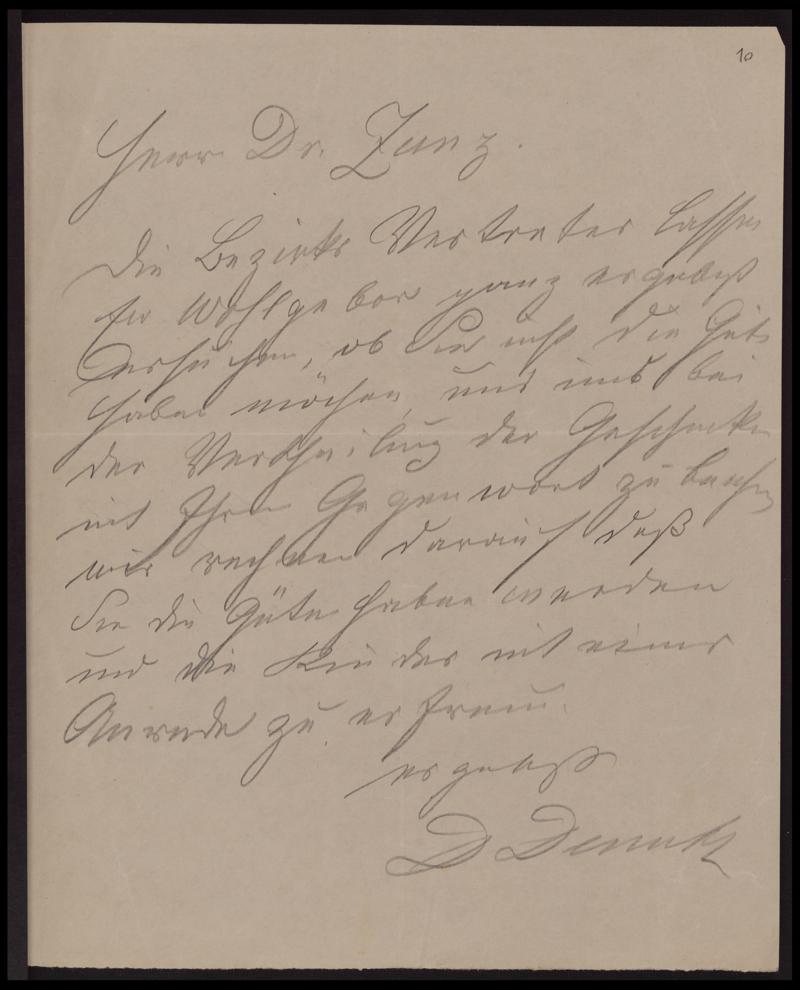 10
Herr Dr. Zunz.
Die Bezirks Vertreter lassen
Ew Wohlgebor ganz ergebenst
ersuchen, ob Sie nicht die Güte
haben möchen, und uns bei
der Vertheilung der Geschenke
mit Ihrer Gegenwart zu beehren
wir rechnen darauf daß
Sie die Güte haben werden
und die Kinder mit einer
Anrede zu erfreun.
ergebenst
D